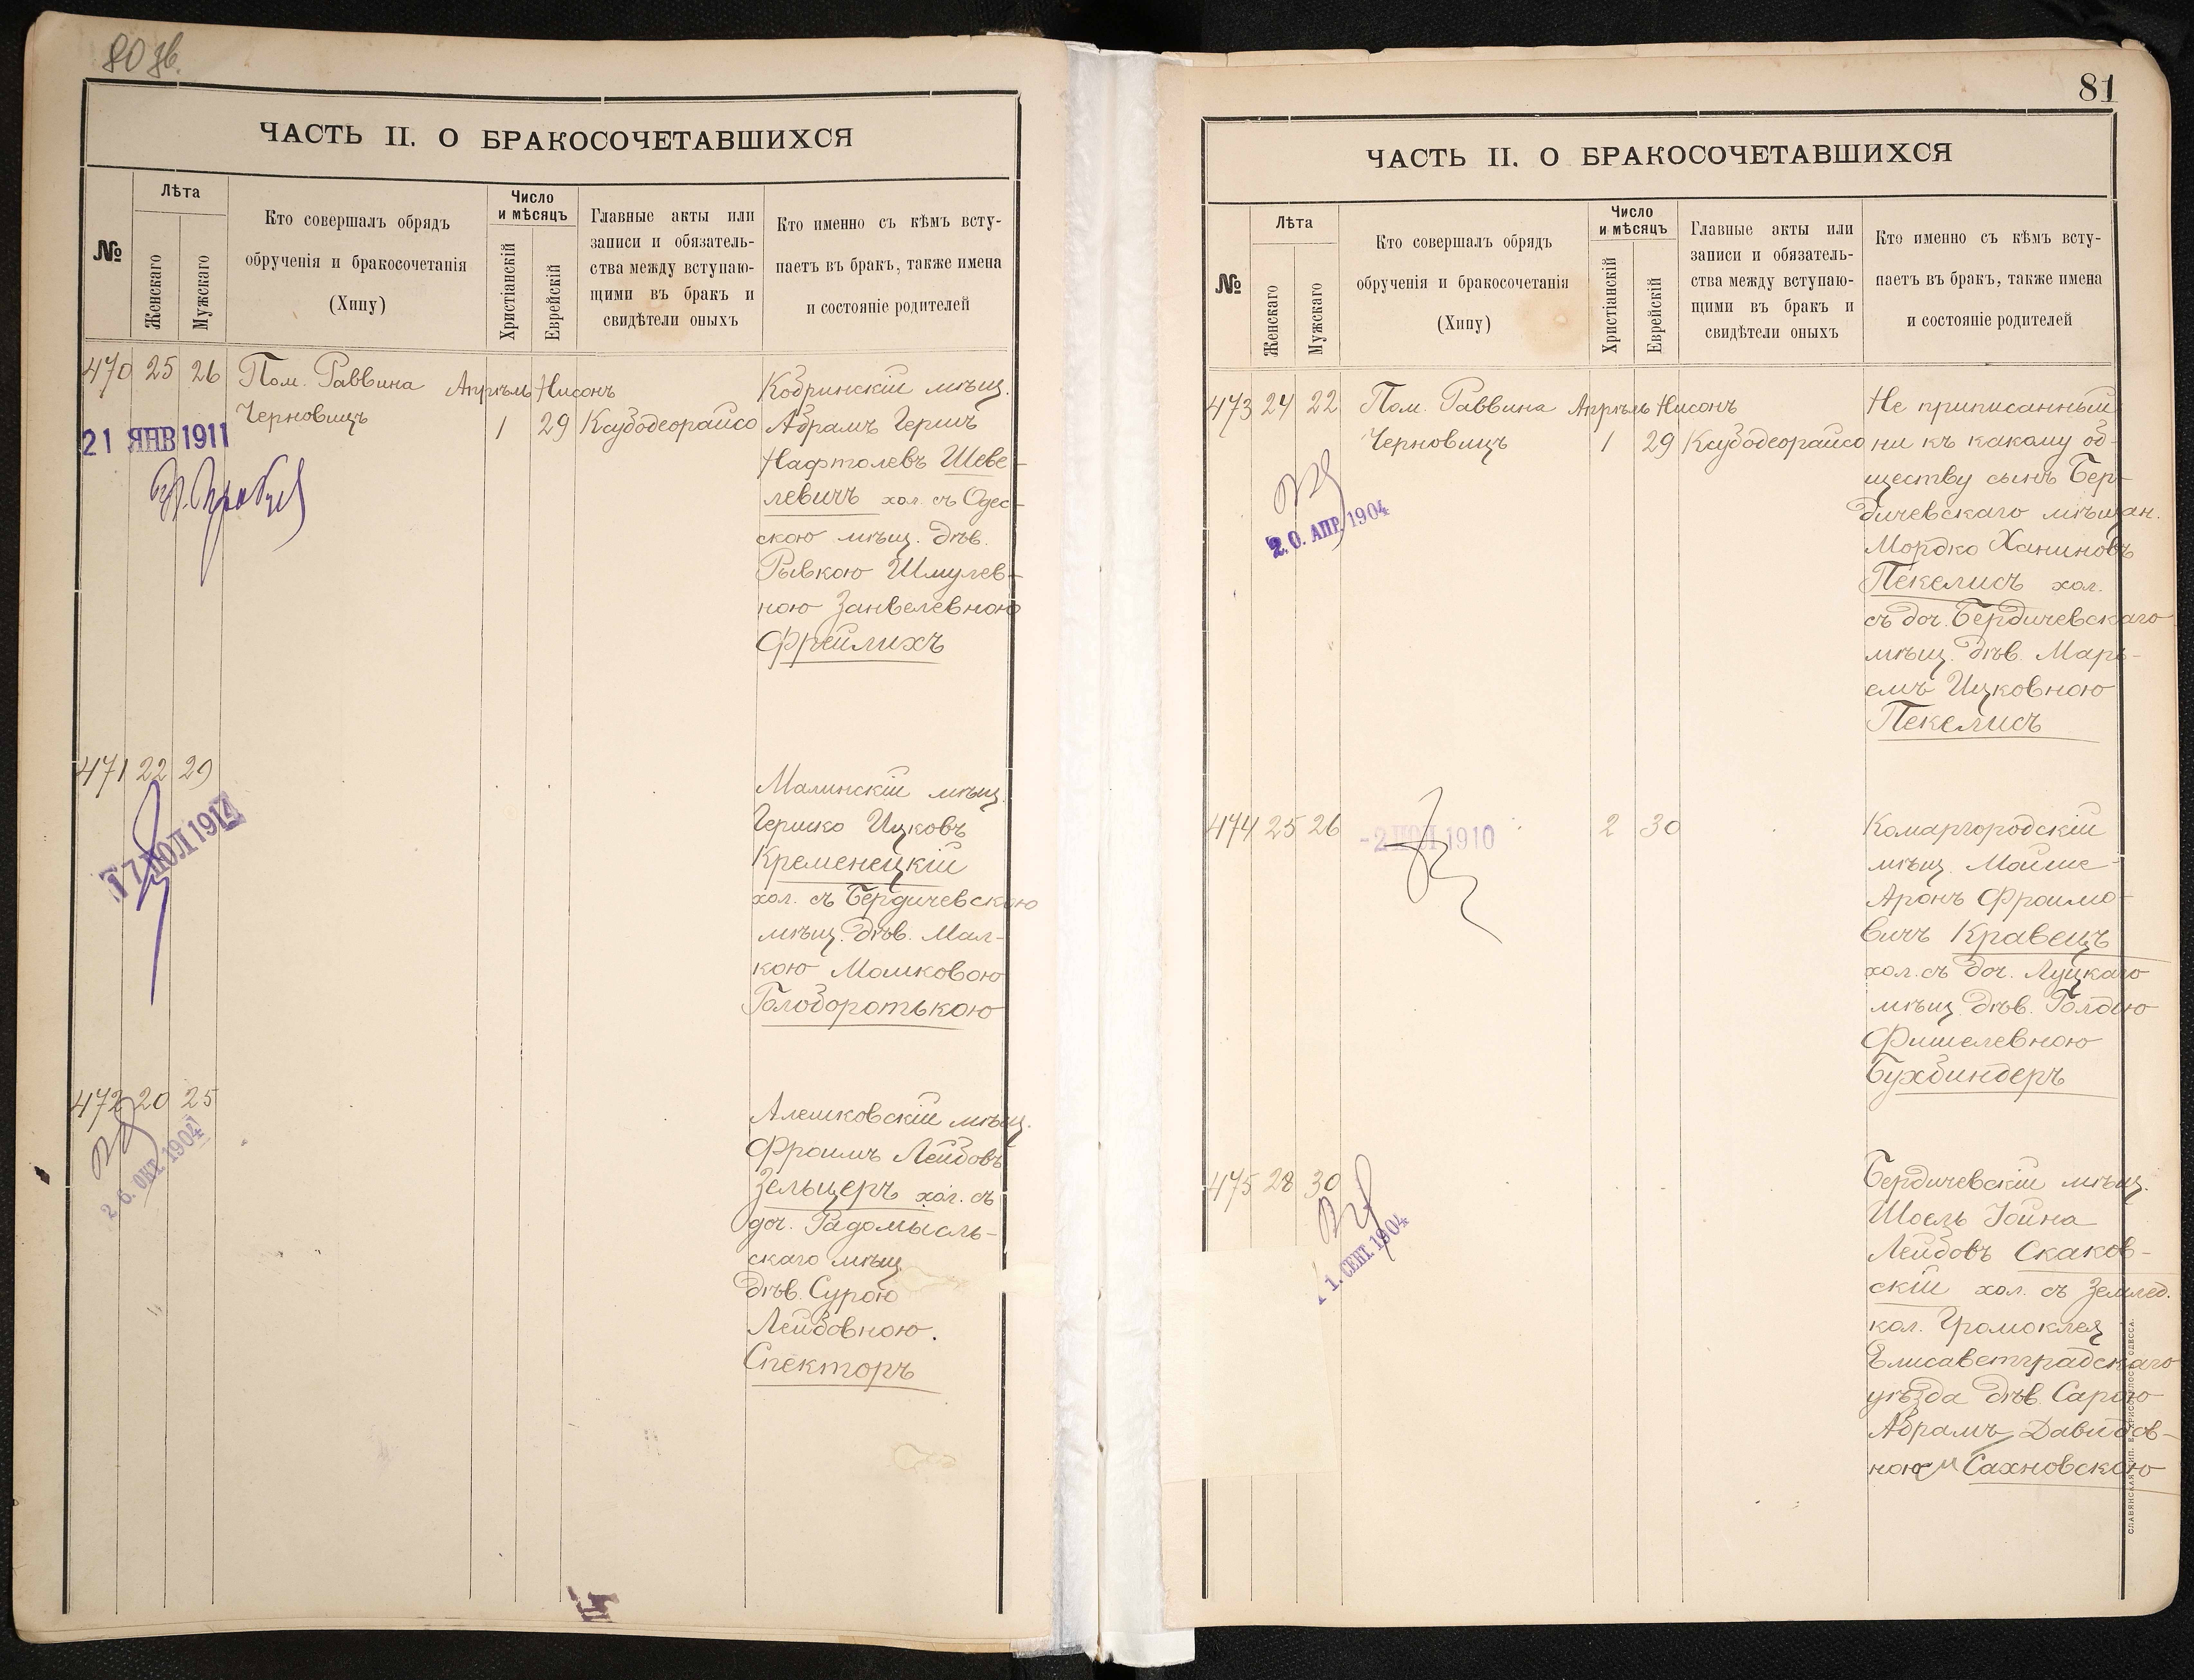 80 зв.
ЧАСТЬ II. О БРАКОСОЧЕТАВШИХСЯ
№
Лѣта
Женскаго
Мужскаго
Кто совершалъ обрядъ
обрученія и бракосочетанія
(Хипу)
Число
и мѣсяцъ
Христіанскій
Еврейскій
Главные акты или
записи и обязатель-
ства между вступаю-
щими въ бракъ и
свидѣтели оныхъ
Кто именно съ кѣмъ всту-
паетъ въ бракъ, также имена
и состояніе родителей
470 25 26 Пом. Раввина Апрѣль Нисонъ
Черновицъ 1 29 Ксубодеорайсо
21 ЯНВ 1911
Кобринскій мѣщ.
Абрамъ Гершъ
Нафтолевъ Шеве-
левичъ хол. съ Одес-
скою мѣщ. дѣв.
Рывкою Шмулев-
ною Занвелевною
Фрейлихъ
471 22 29
17 ЮЛ 1914
Малинскій мѣщ.
Гершко Ицковъ
Кременецкій
хол. съ Бердичевскою
мѣщ. дѣв. Мал-
кою Мошковою
Голоборотькою
472 20 25
26. ОКТ. 1904
Алешковскій мѣщ.
Фроимъ Лейбовъ
Зельцеръ хол. съ
доч. Радомысль-
скаго мѣщ
дѣв. Сурою
Лейбовною.
Спекторъ
81
ЧАСТЬ II. О БРАКОСОЧЕТАВШИХСЯ
№
Лѣта
Женскаго
Мужскаго
Кто совершалъ обрядъ
обрученія и бракосочетанія
(Хипу)
Число
и мѣсяцъ
Христіанскій
Еврейскій
Главные акты или
записи и обязатель-
ства между вступаю-
щими въ бракъ и
свидѣтели оныхъ
Кто именно съ кѣмъ всту-
паетъ въ бракъ, также имена
и состояніе родителей
473 24 22 Пом. Раввина Апрѣль Нисонъ
Черновицъ 1 29 Ксубодеорайсо
2.0. АПР. 1904
Не приписанный
ни къ какому об-
ществу сынъ Бер-
дичевскаго мѣщан.
Мордко Ханиновъ
Пекелисъ хол.
съ доч. Бердичевскаго
мѣщ. дѣв. Марь-
емъ Ицковною
Пекелисъ
474 25 26 2 30
-2 ИЮЛ 1910
Комаргородскій
мѣщ. Мойше-
Аронъ Фроимо-
вичъ Кравецъ
хол. съ доч. Луцкаго
мѣщ. дѣв. Голдою
Фишелевною
Бухбиндеръ
475 28 30
1. СЕНТ. 1904
Бердичевскій мѣщ.
Шоель Іойна
Лейбовъ Скаков-
скій хол. съ Землед.
кол. Громоклея
Елисаветградскаго
уѣзда дѣв. Сарою
Абрамъ Давидов-
ною Сахновскою